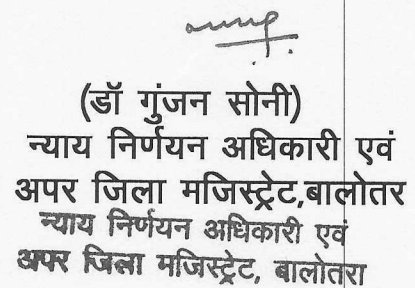 (डॉ गुंजन सोनी)
न्याय निर्णयन अधिकारी एवं
अपर जिला मजिस्ट्रेट,बालोतर
न्याय निर्णयन अधिकारी एवं
अपर जिला मजिस्ट्रेट, बालोतरा